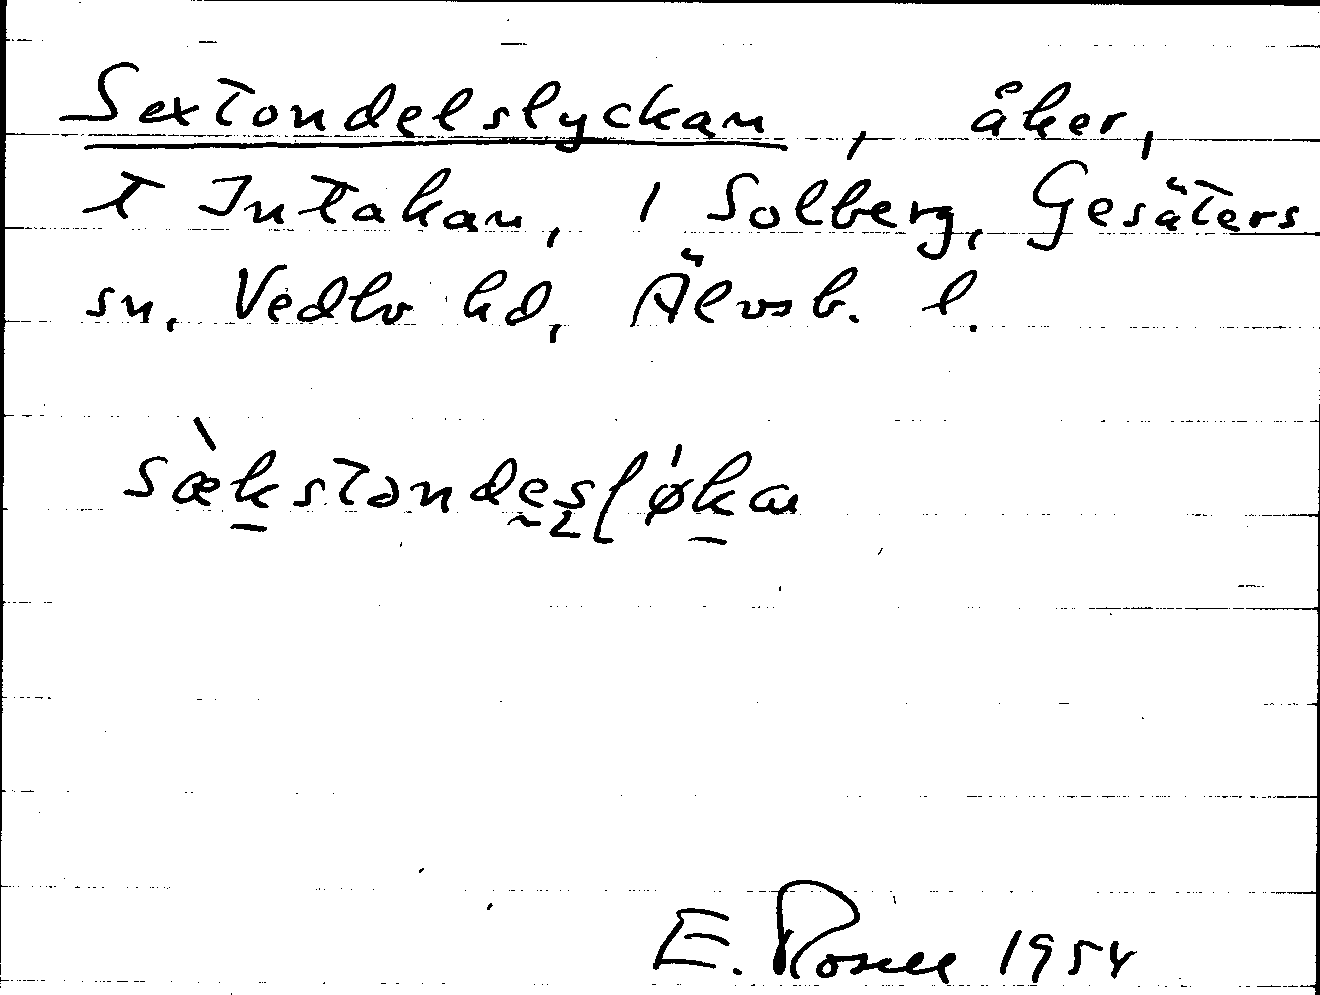 Sextondelslyckan, åker,
t Intakan, i Solberg, Gesäters
sn, Vedbo hd, Älvsb. l.
sækstondesløka
E. Rosell 1954